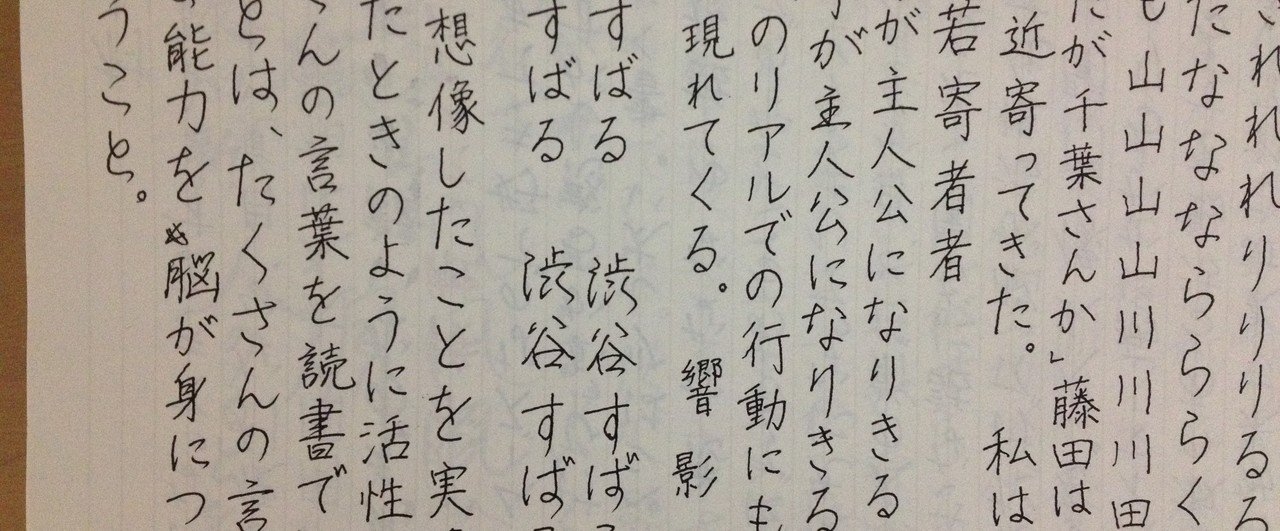 されれれりりりるる
たなななららららく
も山山山山川川川田
だが千葉さんか」藤田は
近寄ってきた。 私は
若寄者者
が主人公になりきる
が主人公になりきる
のリアルでの行動にも
現れてくる。 響 影
すばる 渋谷すばる
すばる 渋谷すばる
想像したことを実
たときのように活性
さんの言葉を読書で
とは、たくさんの言
能力を脳が身につ
うこと。